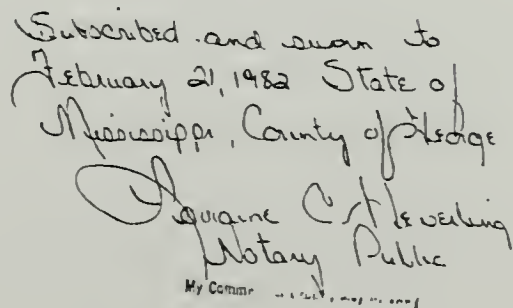 Subscribed and sworn to
February 21, 1982 State of
Mississippi, County of George
C.
Notary Public
My Comm